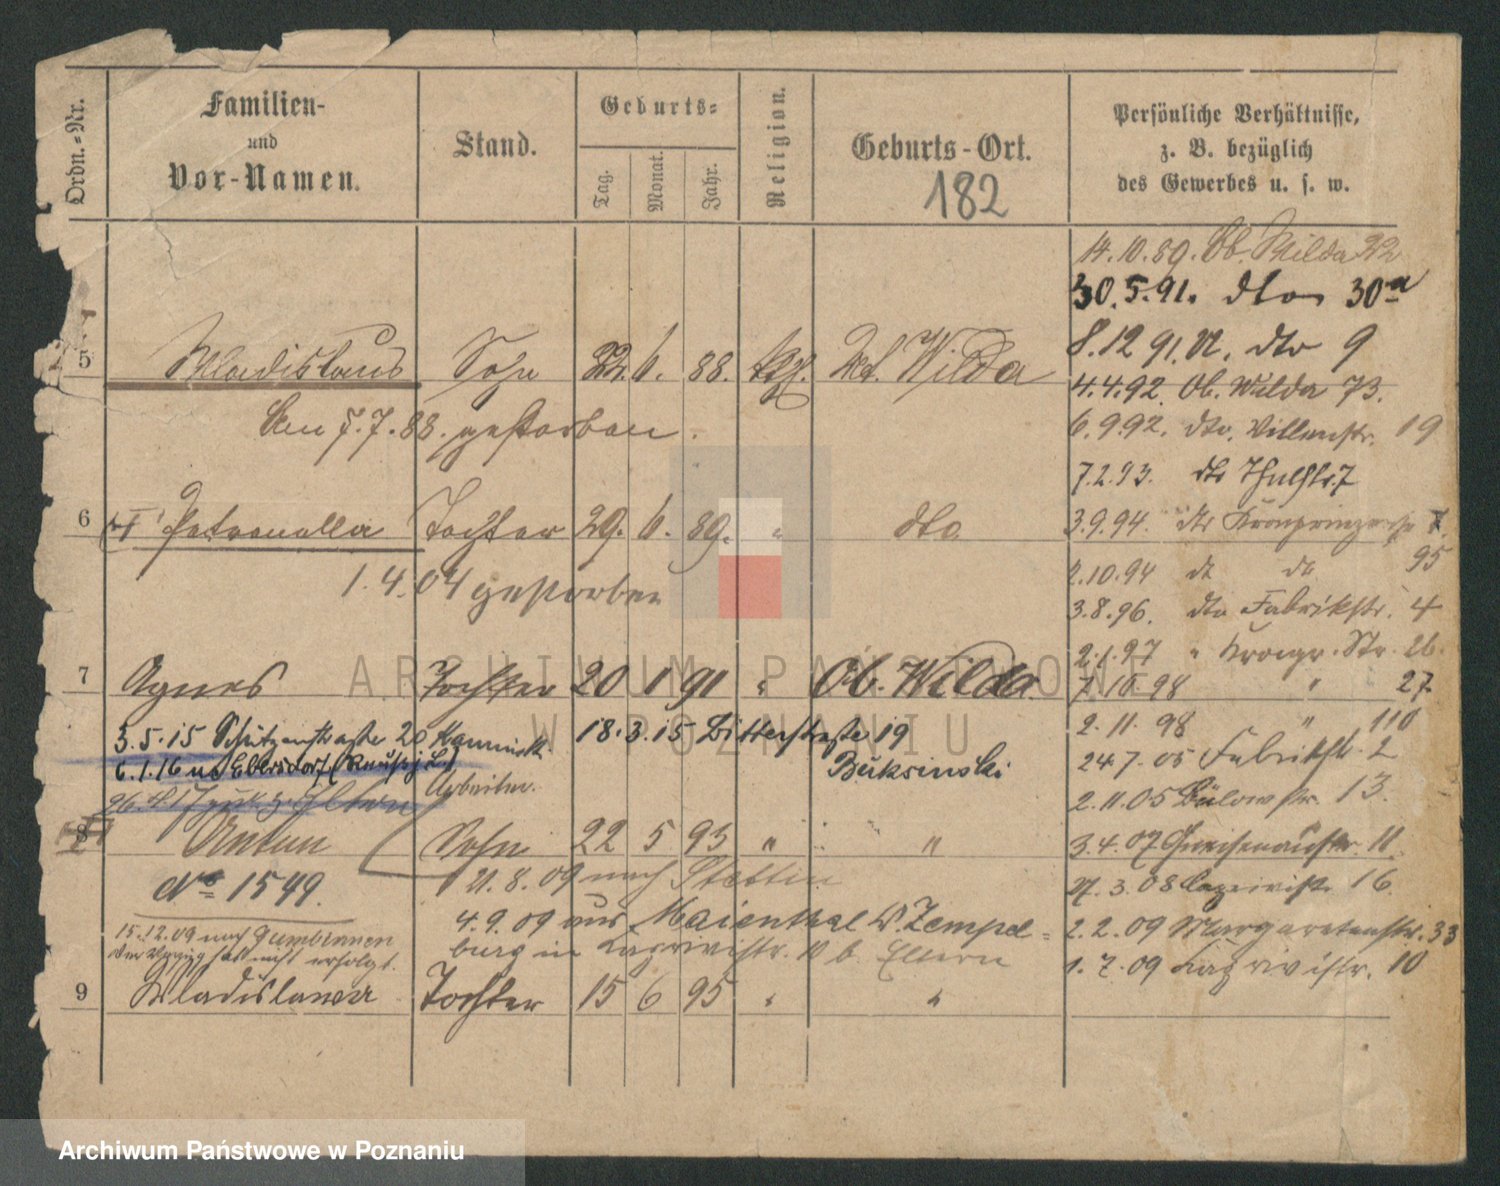 Ordn.-Nr.
Familien-
und
Vor-Namen.
Stand.
Geburts-
Tag.
Monat.
Jahr.
Religion.
Geburts-Ort.
182
Persönliche Verhältnisse,
z. B. bezüglich
des Gewerbes u. s. w.
14.10.89. Ob. Wilda 22
30.5.91. dto 30a
8.12 91. U. dto 9
5 Wladislaus Sohn 22. 6. 88. kth. Unt. Wilda
4.4.92. Ob. Wilda 73.
am 7.7.88. gestorben.
6.9.92. dto. Villenstr. 19
7.2.93. dto Thalstr. 7
6 Petronella Tochter 29. 6. 89. " dto
3.9.94. dto Kronprinzenstr 7.
2.10.94 dto dto 95
1.4.04 gestorben
3.8.96. dto Fabrikstr. 4
2.1.97 " Kronpr. Str. 26.
7 Agnes Tochter 20 1 91 " Ob. Wilda
7.10.98 " 27.
3.5.15 Schützenstraße 20 18.3.15 Bitterstraße 19
2.11.98 " 110
6.1.16 n. Ebersdorf
Buksinski
24.7.05 Fabrikstr. 2
Arbeiter.
2.11.05 Bülowstr. 13.
8 Anton Sohn 22 5 93 " "
3.4.07 Gneisenaustr. 11.
No 1549.
21.8.09 nach Stettin
27.3.08 16
4.9.09 aus Maienthal Zempel-
2.2.09 Margaretenstr. 33
15.12.09 nach Gumbinnen
burg in 10 b. Eltern
Der Verzug hat nicht erfolgt.
1.7.09 10
9 Wladislawa Tochter 15 6 95 " "
ARCHIWUM PAŃSTWOWE
W POZNANIU
Archiwum Państwowe w Poznaniu